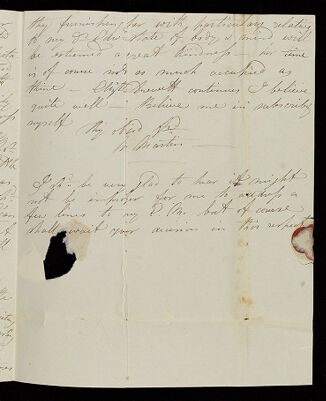 thy furnishing her with particular relative
to my D. state of body & mind will
be esteemed a great kindness — her time
is of course not so much occupied as
thine — Everett continues I believe
quite well — Believe me in subscribg
myself
Thy obliged
Martin
I shd. be very glad to hear it might
not be improper for me to address a
few lines to my D but of course
shall wait your decision in this respect